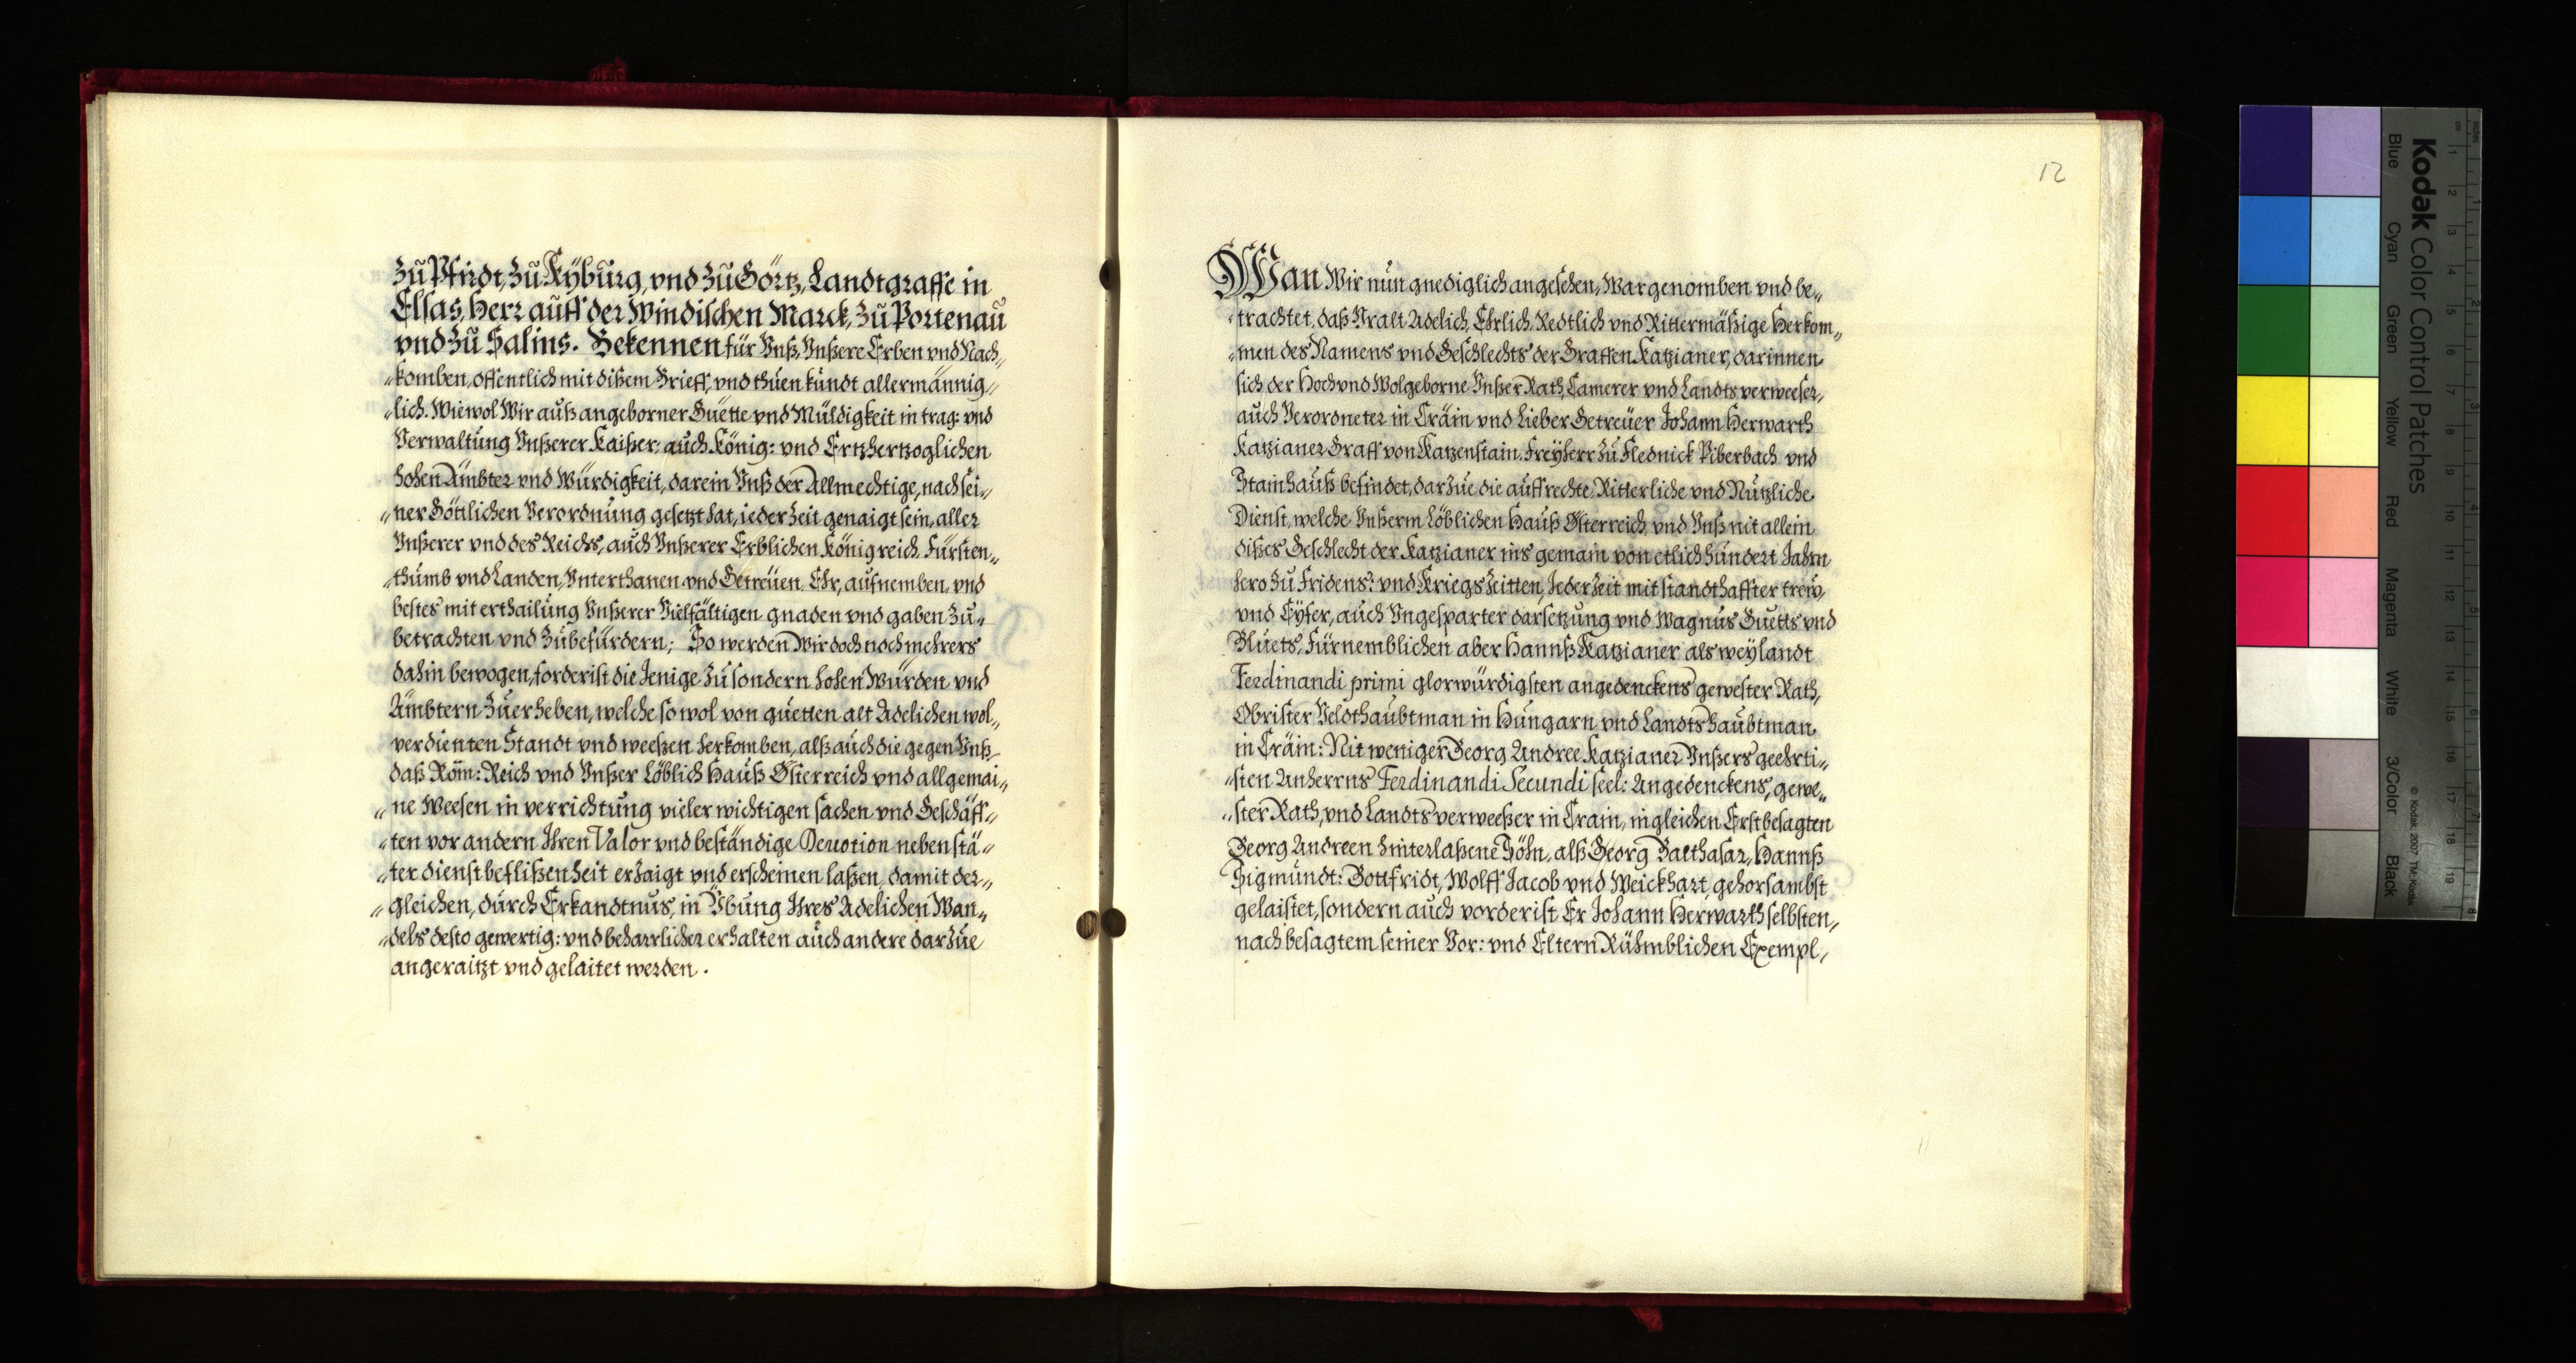 Zu Pfirdt, zu Kÿburg, vnd zu Görtz, Landtgraffe in
Elsas, Herr auff der Windischen Marck, zu Portenau
vnd zu Salins. Bekennen für Vnß, Vnßere Erben vnd Nach„
„komben, offentlich mit dißem Brieff, vnd thuen kundt allermännig„
„lich. Wiewol Wir auß angeborner Güette vnd Müldigkeit in trag: vnd
Verwaltung Vnßerer Kaißer: auch König: vnd Ertzhertzoglichen
hohen Ämbter vnd Würdigkeit, darein Vnß der Allmechtige, nach sei„
„ner Göttlichen Verordnung gesetzt hat, ieder Zeit genaigt sein, aller
Vnßerer vnd des Reichs, auch Vnßerer Erblichen Königreich, Fürsten„
„thumb vnd Landen, Vnterthanen vnd Getreüen Ehr, aufnemben, vnd
bestes mit erthailung Vnßerer Vielfältigen gnaden vnd gaben zu„
betrachten vnd zubefürdern; So werden Wir doch noch mehrers
dahin bewogen, forderist die Jenige zu sondern hohen Würden vnd
Ämbtern zuerheben, welche so wol von guetten alt Adelichen wol„
verdienten Standt vnd weeßen herkomben, alß auch die gegen Vnß
daß Röm: Reich vnd Vnßer Löblich Hauß Österreich vnd allgemai„
„ne Weesen in verrichtung vieler wichtigen sachen vnd Geschäff„
„ten vor andern Ihren Valor vnd beständige Deuotion neben stä„
„ter dienstbeflißenheit erzaigt vnd erscheinen laßen, damit der„
„gleichen, durch Erkandtnus, in Übung Ihres Adelichen Wan„
„delss desto gewertig: vnd beharrlicher erhalten auch andere darzue
angeraitzt vnd gelaitet werden.
12
Wan Wir nun gnediglich angesehen, Wargenomben vnd be„
„trachtet, daß Vralt Adelich, Ehrlich, Redtlich vnd Rittermäßige Herkom„
„men des Namens vnd Geschlechts der Graffen Katzianer, darinnen
sich der Hoch vnd Wolgeborne Vnßer Rath, Camerer vnd Landtsverweeser,
auch Verordneter in Cräin vnd Lieber Getreüer Johann Herwarth
Katzianer Graff von Katzenstain, Freÿherr zu Flednick, Piberbach, vnd
Stainhauß befindet, darzue die auffrechte, Ritterliche vnd Nutzliche
Dienst, welche Vnßerm Löblichen Hauß Österreich, vnd Vnß nit allein
dißes Geschlecht der Katzianer ins gemain von etlich hundert Jahrn
hero zu Fridens: vnd Kriegs Zeitten, Jeder Zeit mit standthaffter trew,
vnd Eÿfer, auch Vngesparter darsetzung vnd Wagnus Guetts vnd
Bluets, Fürnemblichen aber Hannß Katzianer als weÿlandt
Ferdinandi primi glorwürdigsten angedenckens gewester Rath,
Obrister Veldthaubtman in Hungarn vnd Landtshaubtman
in Cräin: Nit weniger Georg Andree Katzianer Vnßers geehrti„
„sten Anherrns Ferdinandi Secundi seel: Angedenckens, gewe„
„ster Rath, vnd Landtsverweeßer in Crain, in gleichen Erstbesagten
Georg Andreen hinterlaßene Söhn, alß Georg Balthasar, Hannß
Sigmundt: Gottfridt, Wolff Jacob vnd Weickhart, gehorsambst
gelaistet, sondern auch vorderist Er Johann Herwarth selbsten,
nach besagtem seiner Vor: vnd Eltern Rühmblichen Exempl,
Kodak Color Control Patches
© Kodak, 2007 TM: Kodak
Blue
Cyan
Green
Yellow
Red
Magenta
White
3/Color
Black
cm 1 2 3 4 5 6 7 8 9 10 11 12 13 14 15 16 17 18 19
inches 1 2 3 4 5 6 7 8